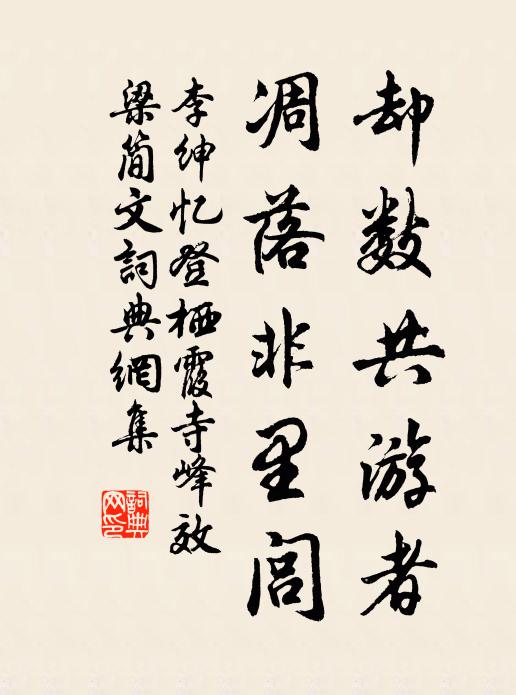 却数共游者
凋落非里闾
李绅忆登栖霞寺峰效
梁简文詞典網集
詞典网印